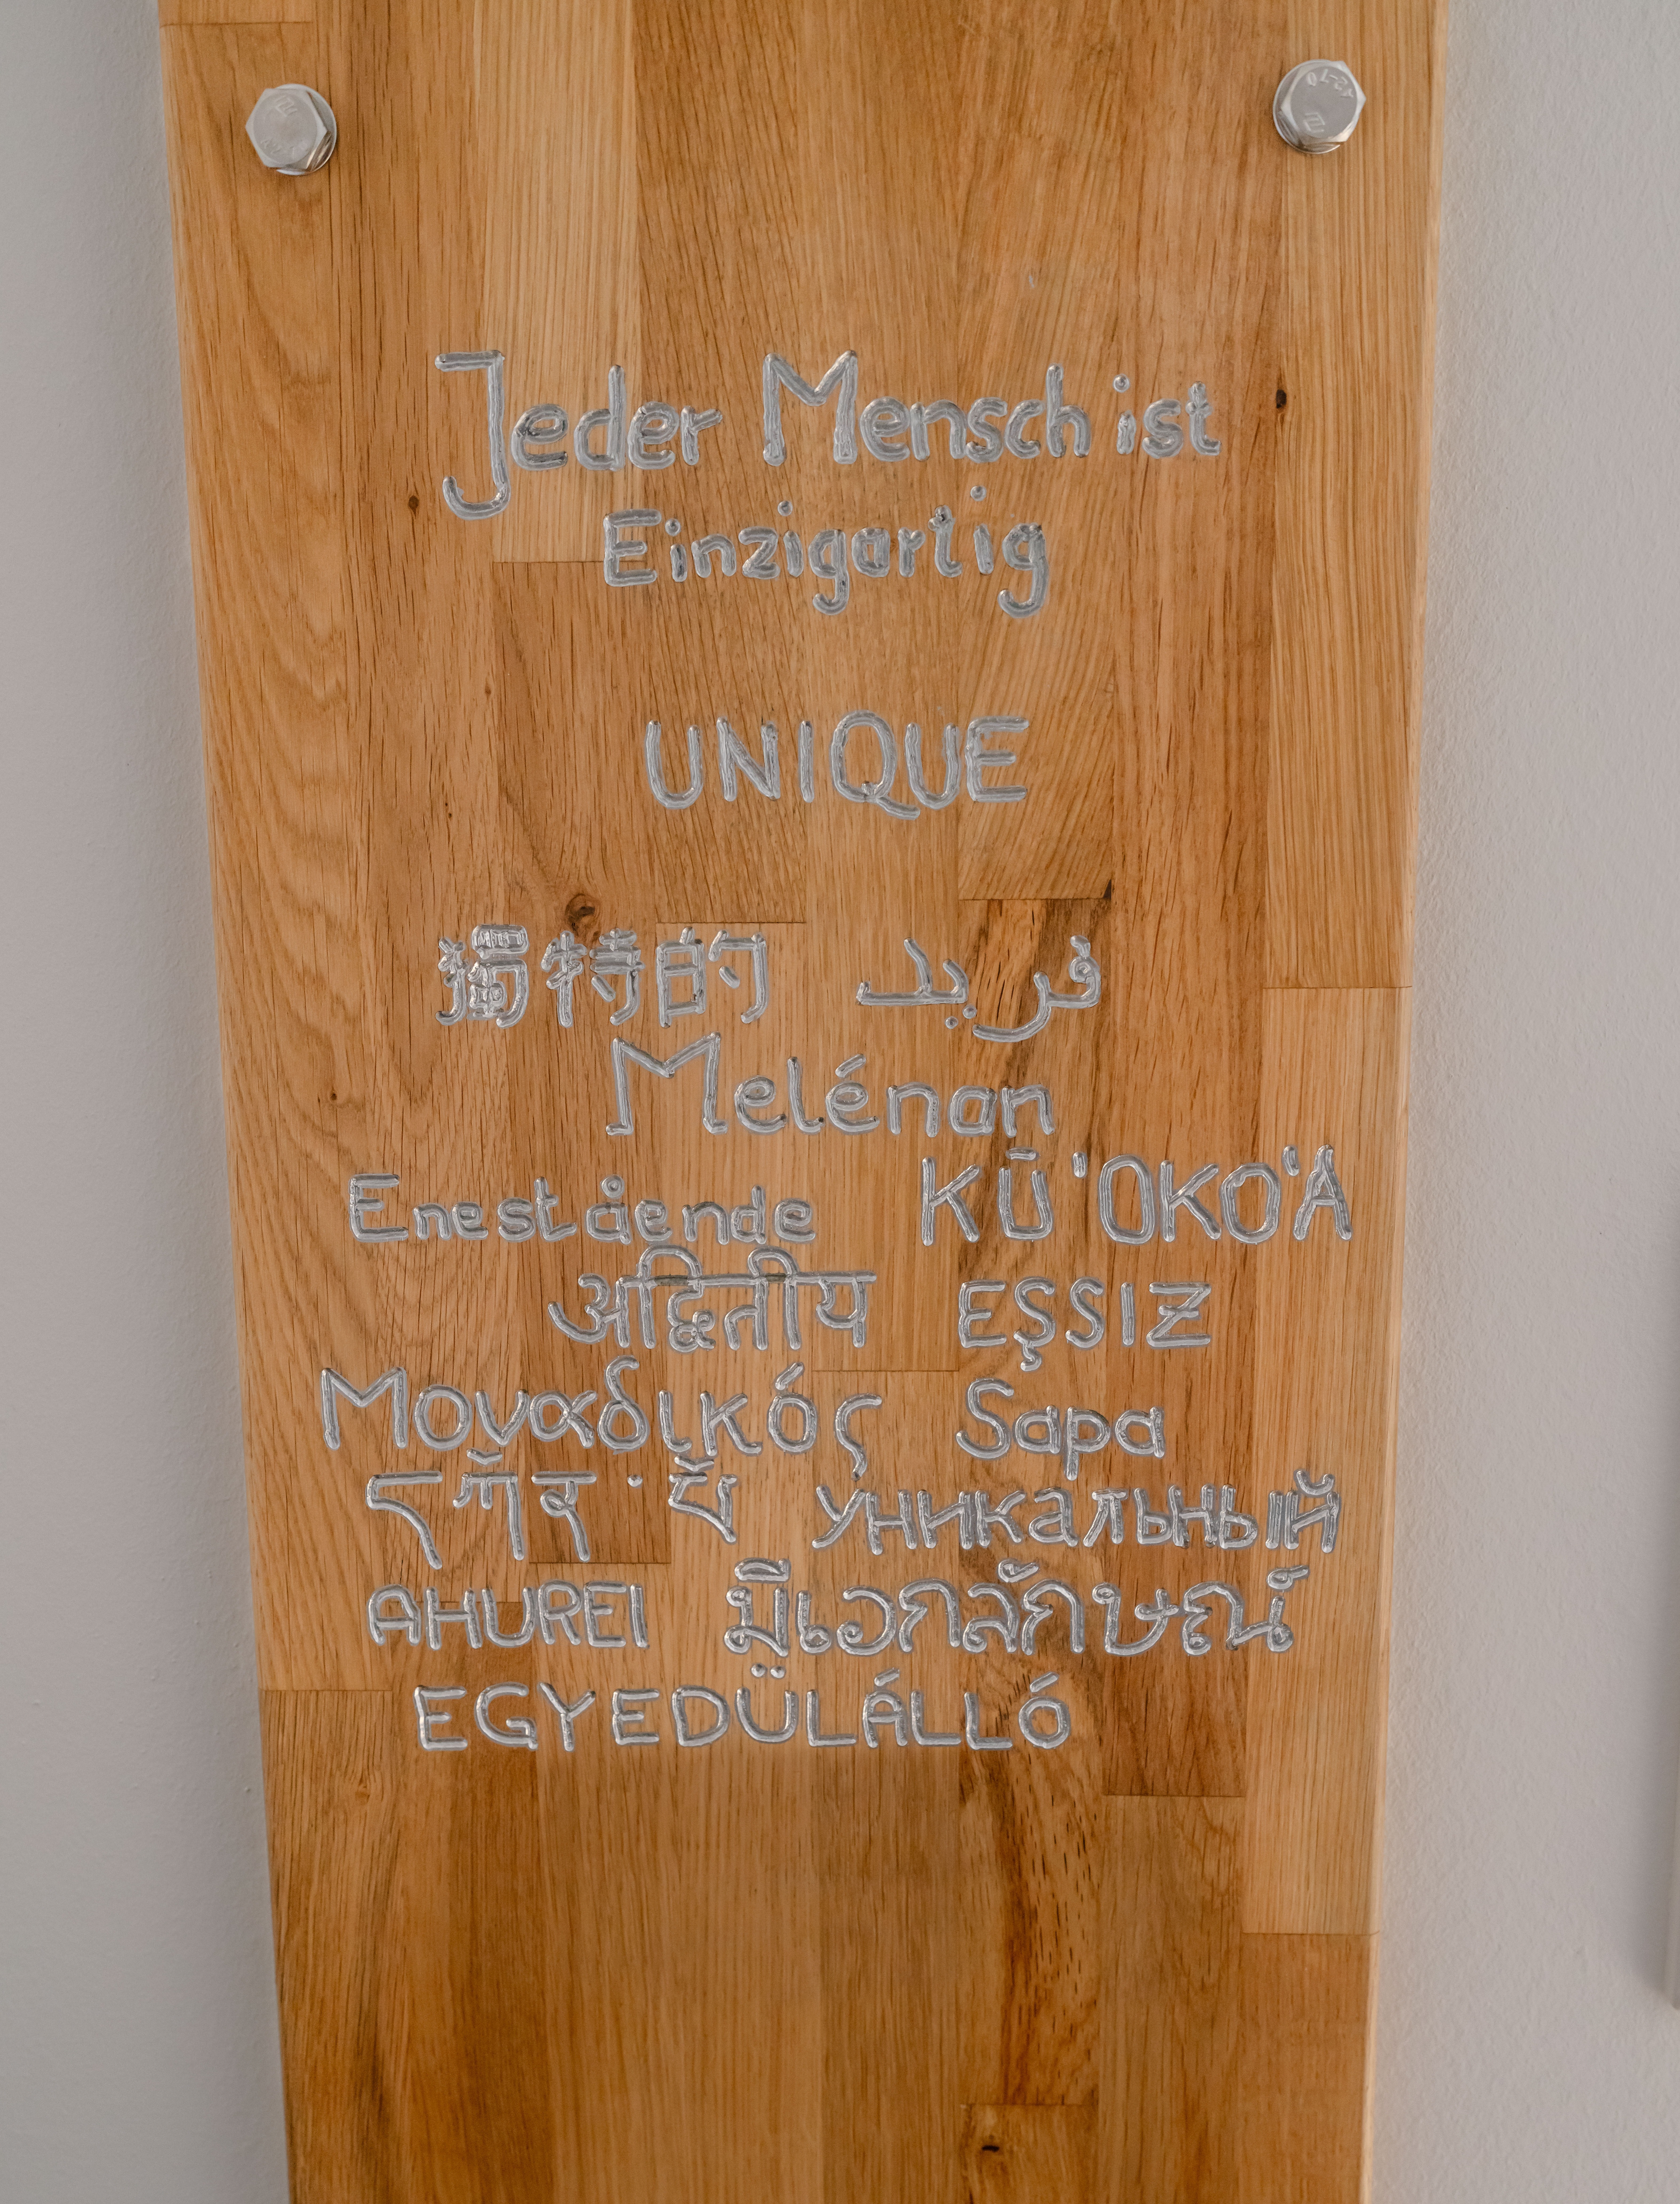 Jeder Mensch ist
Einzigartig
UNIQUE
獨特的 فريد
Melénan
Enestående KŪ'OKO'A
अद्वितीय EŞSIZ
Μοναδικός Sapa
уникальный
AHUREI มีเอกลักษณ์
EGYEDÜLÁLLÓ
A2-70